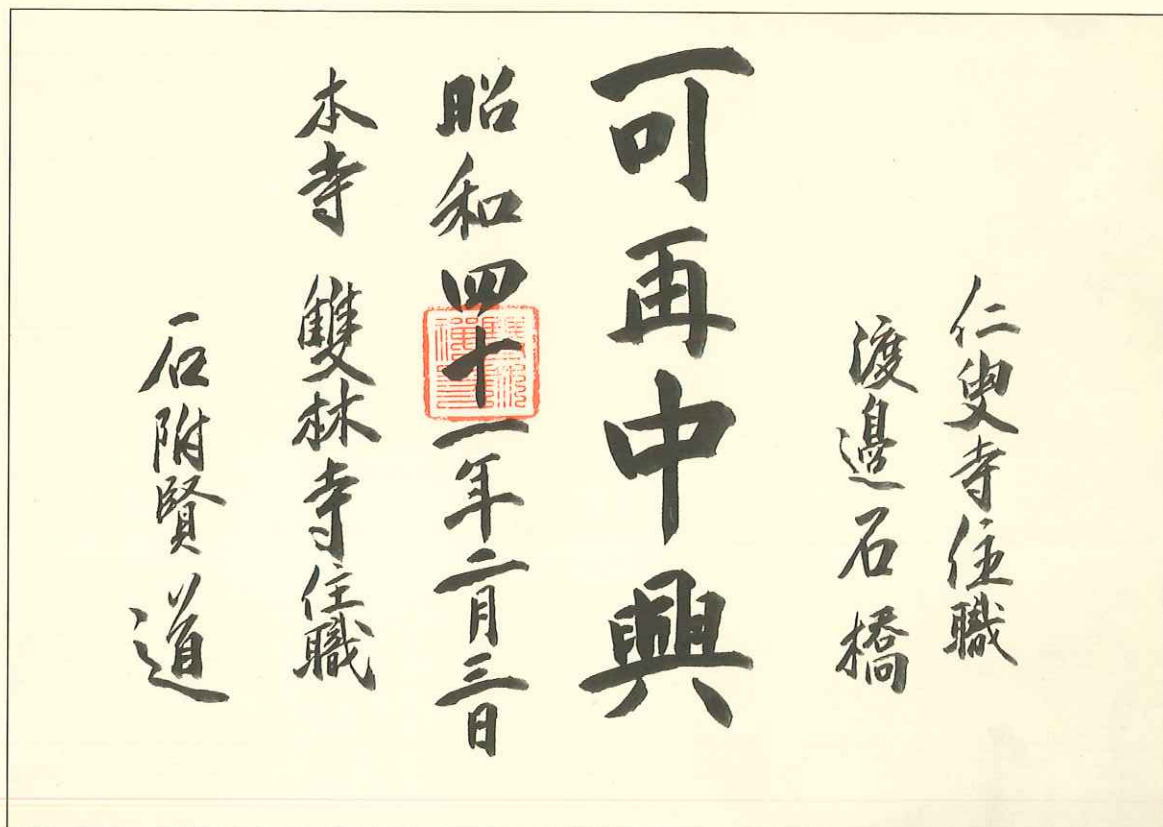 仁叟寺住職
渡邉石橋
可再中興
昭和四十一年二月三日
本寺 雙林寺住職
石附賢道